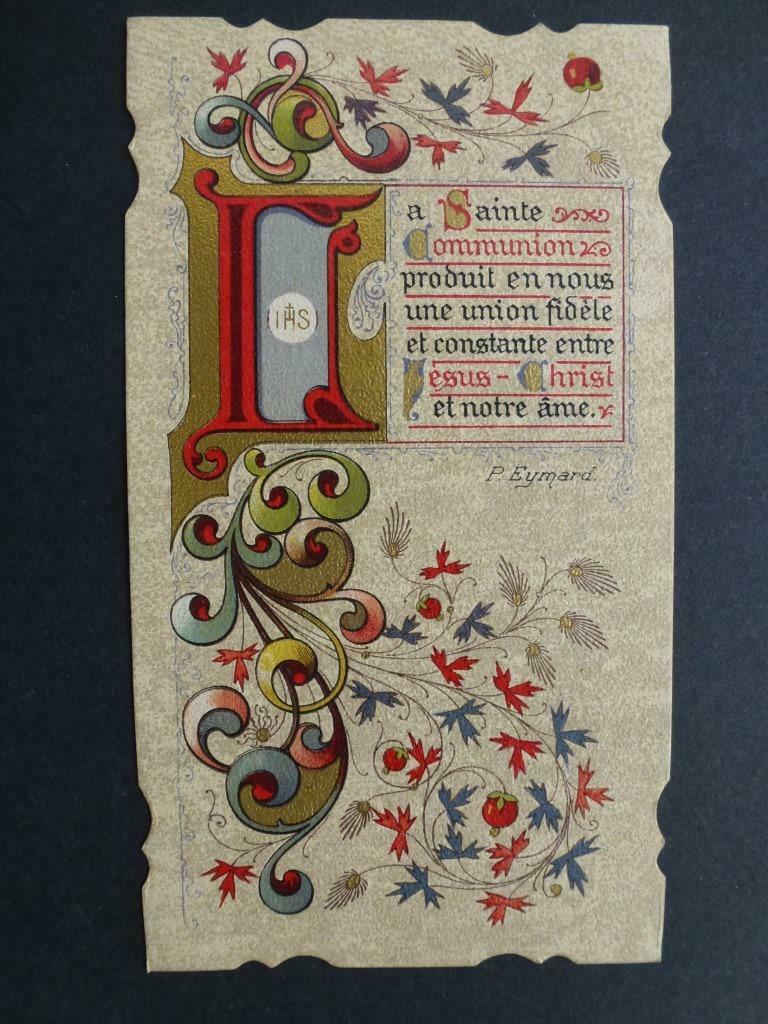 La Sainte
Communion
produit en nous
une union fidèle
et constante entre
Jésus-Christ
et notre âme.
IHS
P. Eymard.